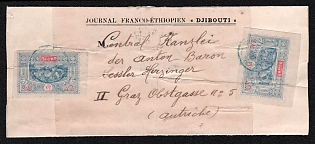 JOURNAL FRANCO-ÉTHIOPIEN « DJIBOUTI »
Central Kanzlei
der Anton Baron
Sessler Herzinger
II Graz Obstgasse No 5
(Autriche)